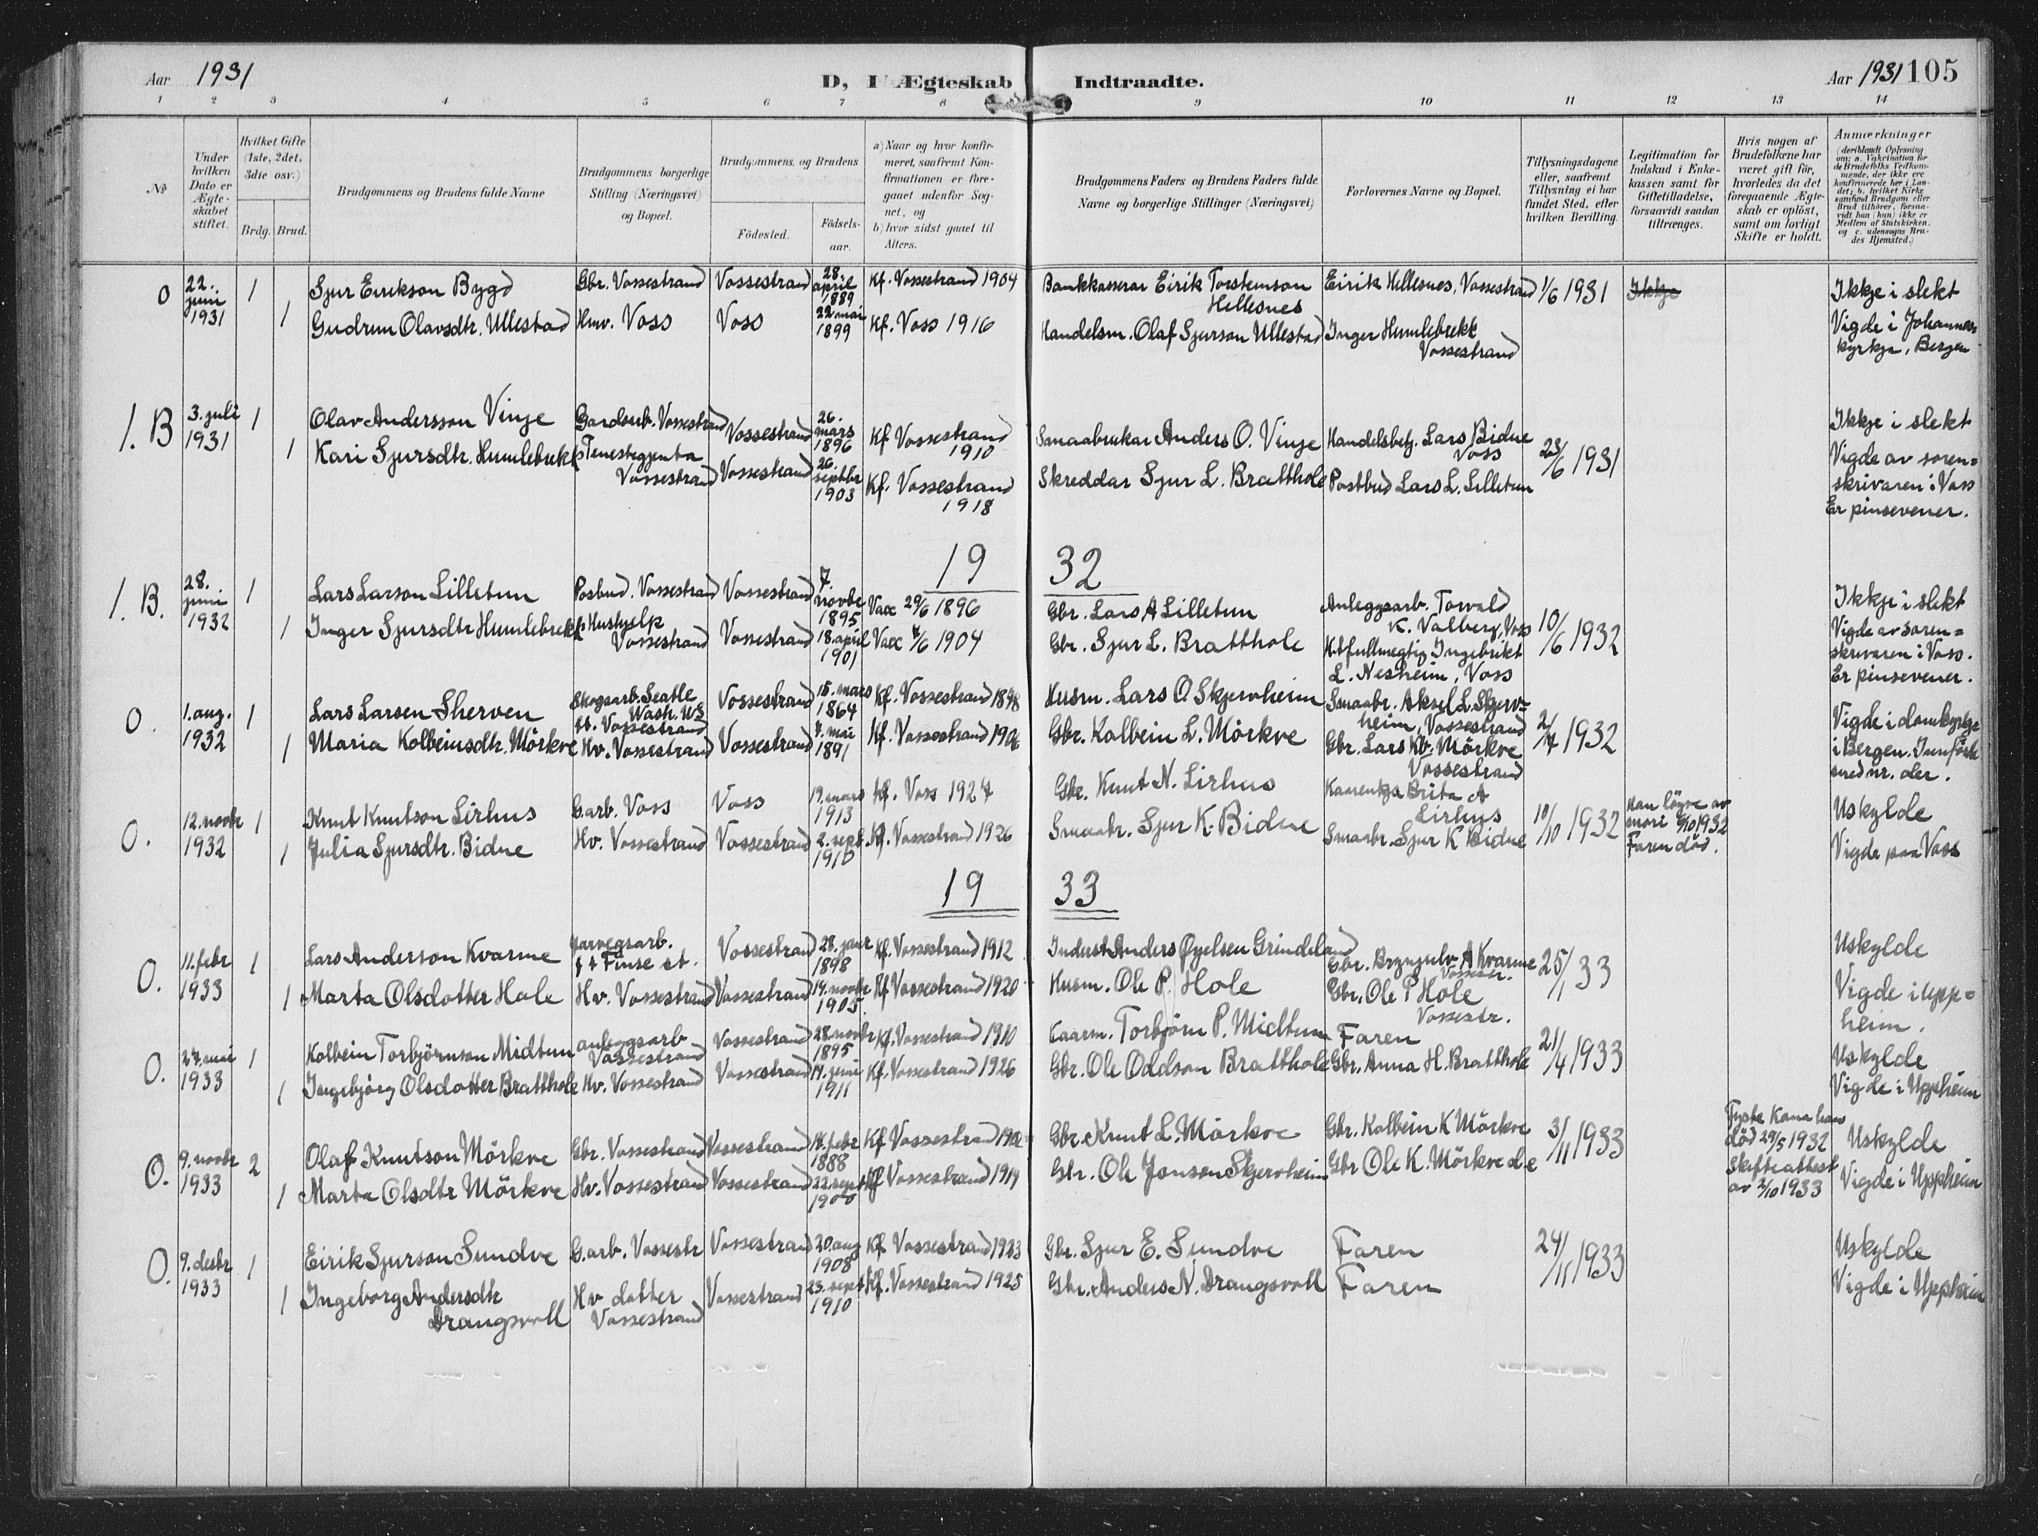 Aar 1931
D, I Ægteskab Indtraadte.
Aar 1931 105
1 2 3 4 5 6 7 8 9 10 11 12 13 14
No
Under hvilken Dato er Ægteskabet stiftet.
Hvilket Gifte (1ste, 2det, 3die osv.)
Brdg. Brud.
Brudgommens og Brudens fulde Navne
Brudgommens borgerlige Stilling (Næringsvei) og Bopæl.
Brudgommens og Brudens
Fødested.
Fødselsaar.
a) Naar og hvor konfirmeret, saafremt Konfirmationen er foregaaet udenfor Sognet, og
b) hvor sidst gaaet til Alters.
Brudgommens Faders og Brudens Faders fulde Navne og borgerlige Stillinger (Næringsvei)
Forlovernes Navne og Bopæl.
Tillysningsdagene eller, saafremt Tillysning ei har fundet Sted, efter hvilken Bevilling.
Legitimation for Indskud i Enkekassen samt for Giftetilladelse, forsaavidt saadan tiltrænges.
Hvis nogen af Brudefolkene har været gift før, hvorledes da det foregaaende Ægteskab er opløst, samt om lovligt Skifte er holdt.
Anmærkninger
(deriblandt Oplysning om: a. Vakcination for de Brudefolks Vedkommende, der ikke ere konfirmerede her i Landet; b. hvilket Kirkesamfund Brudgom eller Brud tilhører, forsaavidt han (hun) ikke er Medlem af Statskirken, og c. udensogns Brudes Hjemsted.)
O 22. juni 1931 1 Sjur Eirikson Bygd Gbr. Vossestrand Vossestrand 28. april 1889 Kf. Vossestrand 1904 Bankkasserar Eirik Torsteinson Hellesnes Eirik Hellesnes, Vossestrand 1/6 1931 Ikkje Ikkje i slekt
1 Gudrun Olavsdtr. Ullestad Huv. Voss Voss 22 mai 1899 Kf. Voss 1916 Handelsm. Olaf Sjurson Ullestad Inger Humlebrekk Vossestrand Vigde i Johanneskyrkja, Bergen
1. B 3. juli 1931 1 Olav Andersson Vinje Gardsarb. Vossestrand Vossestrand 26. mars 1896 Kf Vossestrand 1910 Smaabrukar Anders O. Vinje Handelsbetj. Lars Bidne Voss 23/6 1931 Ikkje i slekt
1 Kari Sjursdtr. Humlebrekk Tenestegjenta Vossestrand Vossestrand 26. septbr 1903 Kf. Vossestrand 1918 Skreddar Sjur L. Bratthole Postbud Lars L. Lilletun Vigde av sorenskrivaren i Voss Er pinsevener.
19 32
1. B. 28. juni 1932 1 Lars Larson Lilletun Posbud. Vossestrand Vossestrand 7. novbr 1895 Vacc 29/6 1896 Gbr. Lars A Lilletun Anleggsarb. Torvald K. Valberg, Voss 10/6 1932 Ikkje i slekt
1 Inger Sjursdtr Humlebrekk Hushjelp Vossestrand Vossestrand 18. april 1901 Vacc 7/6 1904 Gbr. Sjur L. Bratthole Ingebrikt L. Nesheim, Voss Vigde av sorenskrivaren i Voss. Er pinsevener.
O. 1. aug. 1932 1 Lars Larsen Sherven Skogsarb. Seatle Wash. Vossestrand Vossestrand 15. mars 1864 Kf. Vossestrand 1898 Husm. Lars O. Skjervheim Smaabr. Aksel L. Skjervheim, Vossestrand 2/7 1932 Vigde i domkyrkja i Bergen.
1 Maria Kolbeinsdtr. Mörkve Hv. Vossestrand Vossestrand 7. mai 1891 Kf. Vossestrand 1906 Gbr. Kolbein L. Mörkve Gbr. Lars Kb. Mörkve Vossestrand nr. der.
O. 12. novbr 1932 1 Knut Knutson Lirhus G.arb. Voss Voss 19. mars 1913 Kf. Voss 1927 Gbr. Knut N. Lirhus Brita A Lirhus 10/10 1932 Han löyve av mori 8/10 1932 Faren död. Uskylde
1 Julia Sjursdtr. Bidne Hv. Vossestrand Vossestrand 2. sept. 1910 Kf. Vossestrand 1926 Smaabr. Sjur K. Bidne Smaabr. Sjur K Bidne Vigde paa Voss
19 33
O. 11. febr 1933 1 Lars Anderson Kvarme Jarvegsarb. Finse st. Vossestrand 28. janr 1898 Kf. Vossestrand 1912 Inderst Anders Øyelsen Grindeland Gbr. Brynjulv A Kvarme Vossestr. 25/1 33 Uskylde
1 Marta Olsdotter Hole Hv. Vossestrand Vossestrand 14. novbr 1905 Kf Vossestrand 1920 Husm. Ole P. Hole Gbr. Ole P Hole Vossestr. Vigde i Uppheim.
O. 27. mai 1933 1 Kolbein Torbjörnson Midtun anleggsarb Vossestrand Vossestrand 28. novbr 1895 Kf. Vossestrand 1910 Kaarm. Torbjörn P. Midtun Faren 21/4 1933 Uskylde
1 Ingebjörg Olsdotter Bratthole Hv. Vossestrand Vossestrand 14. juni 1911 Kf. Vossestrand 1926 Gbr. Ole Oddson Bratthole Gbr. Anna H. Bratthole Vigde i Uppheim
O. 9. novbr 1933 2 Olaf Knutson Mörkve Gbr. Vossestrand Vossestrand 14. febr 1888 Kf Vossestrand 1902 Gbr. Knut L. Mörkve Gbr. Kolbein K Mörkve 3/11 1933 Fyste kona hans död 29/5 1932 Uskylde
1 Marta Olsdtr Mörkve Hv. Vossestrand Vossestrand 22. sept 1900 Kf Vossestrand 1914 Gbr. Ole Jonsen Skjervheim Gbr Ole K. Mörkve d.e Skifteattest av 2/10 1933 Vigde i Uppheim
O. 9. desbr 1933 1 Eirik Sjurson Sundve G.arb. Vossestr Vossestrand 20. aug 1908 Kf Vossestrand 1923 Gbr. Sjur E. Sundve Faren 24/11 1933 Uskylde
1 Ingeborg Andersdtr Drangsvoll Hv dotter Vossestrand Vossestrand 23. sept 1910 Kf. Vossestrand 1925 Gbr. Anders N. Drangsvoll Faren Vigde i Uppheim